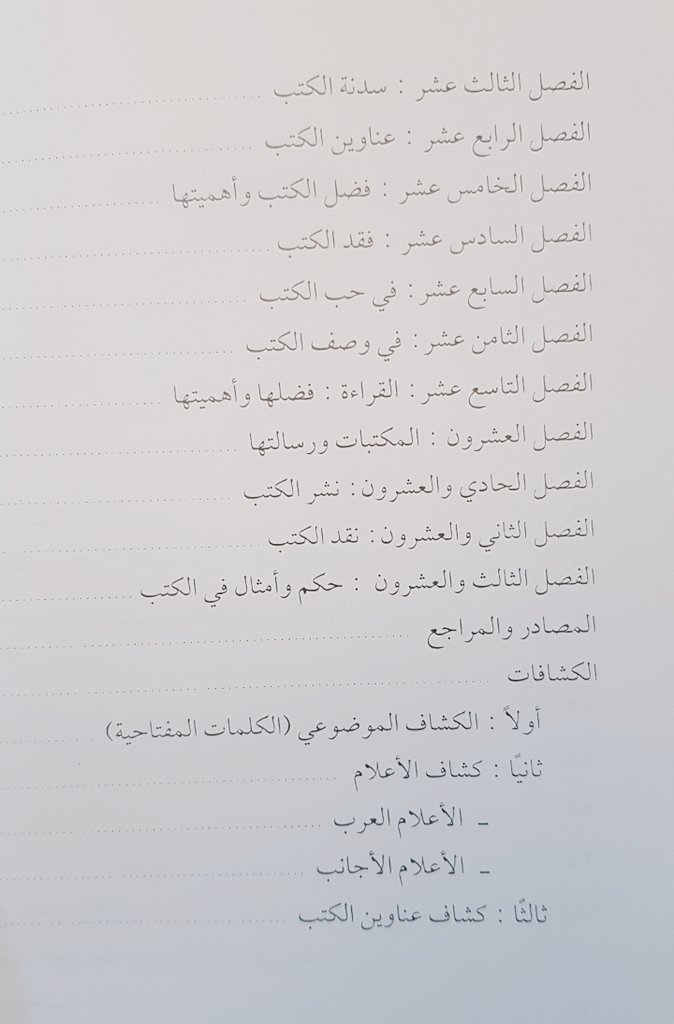 الفصل الثالث عشر : سدنة الكتب
الفصل الرابع عشر : عناوين الكتب
الفصل الخامس عشر : فضل الكتب وأهميتها
الفصل السادس عشر : فقد الكتب
الفصل السابع عشر : في حب الكتب
الفصل الثامن عشر : في وصف الكتب
الفصل التاسع عشر : القراءة : فضلها وأهميتها
الفصل العشرون : المكتبات ورسالتها
الفصل الحادي والعشرون : نشر الكتب
الفصل الثاني والعشرون : نقد الكتب
الفصل الثالث والعشرون : حكم وأمثال في الكتب
المصادر والمراجع
الكشافات
أولاً : الكشاف الموضوعي (الكلمات المفتاحية)
ثانيًا : كشاف الأعلام
ـ الأعلام العرب
ـ الأعلام الأجانب
ثالثًا : كشاف عناوين الكتب